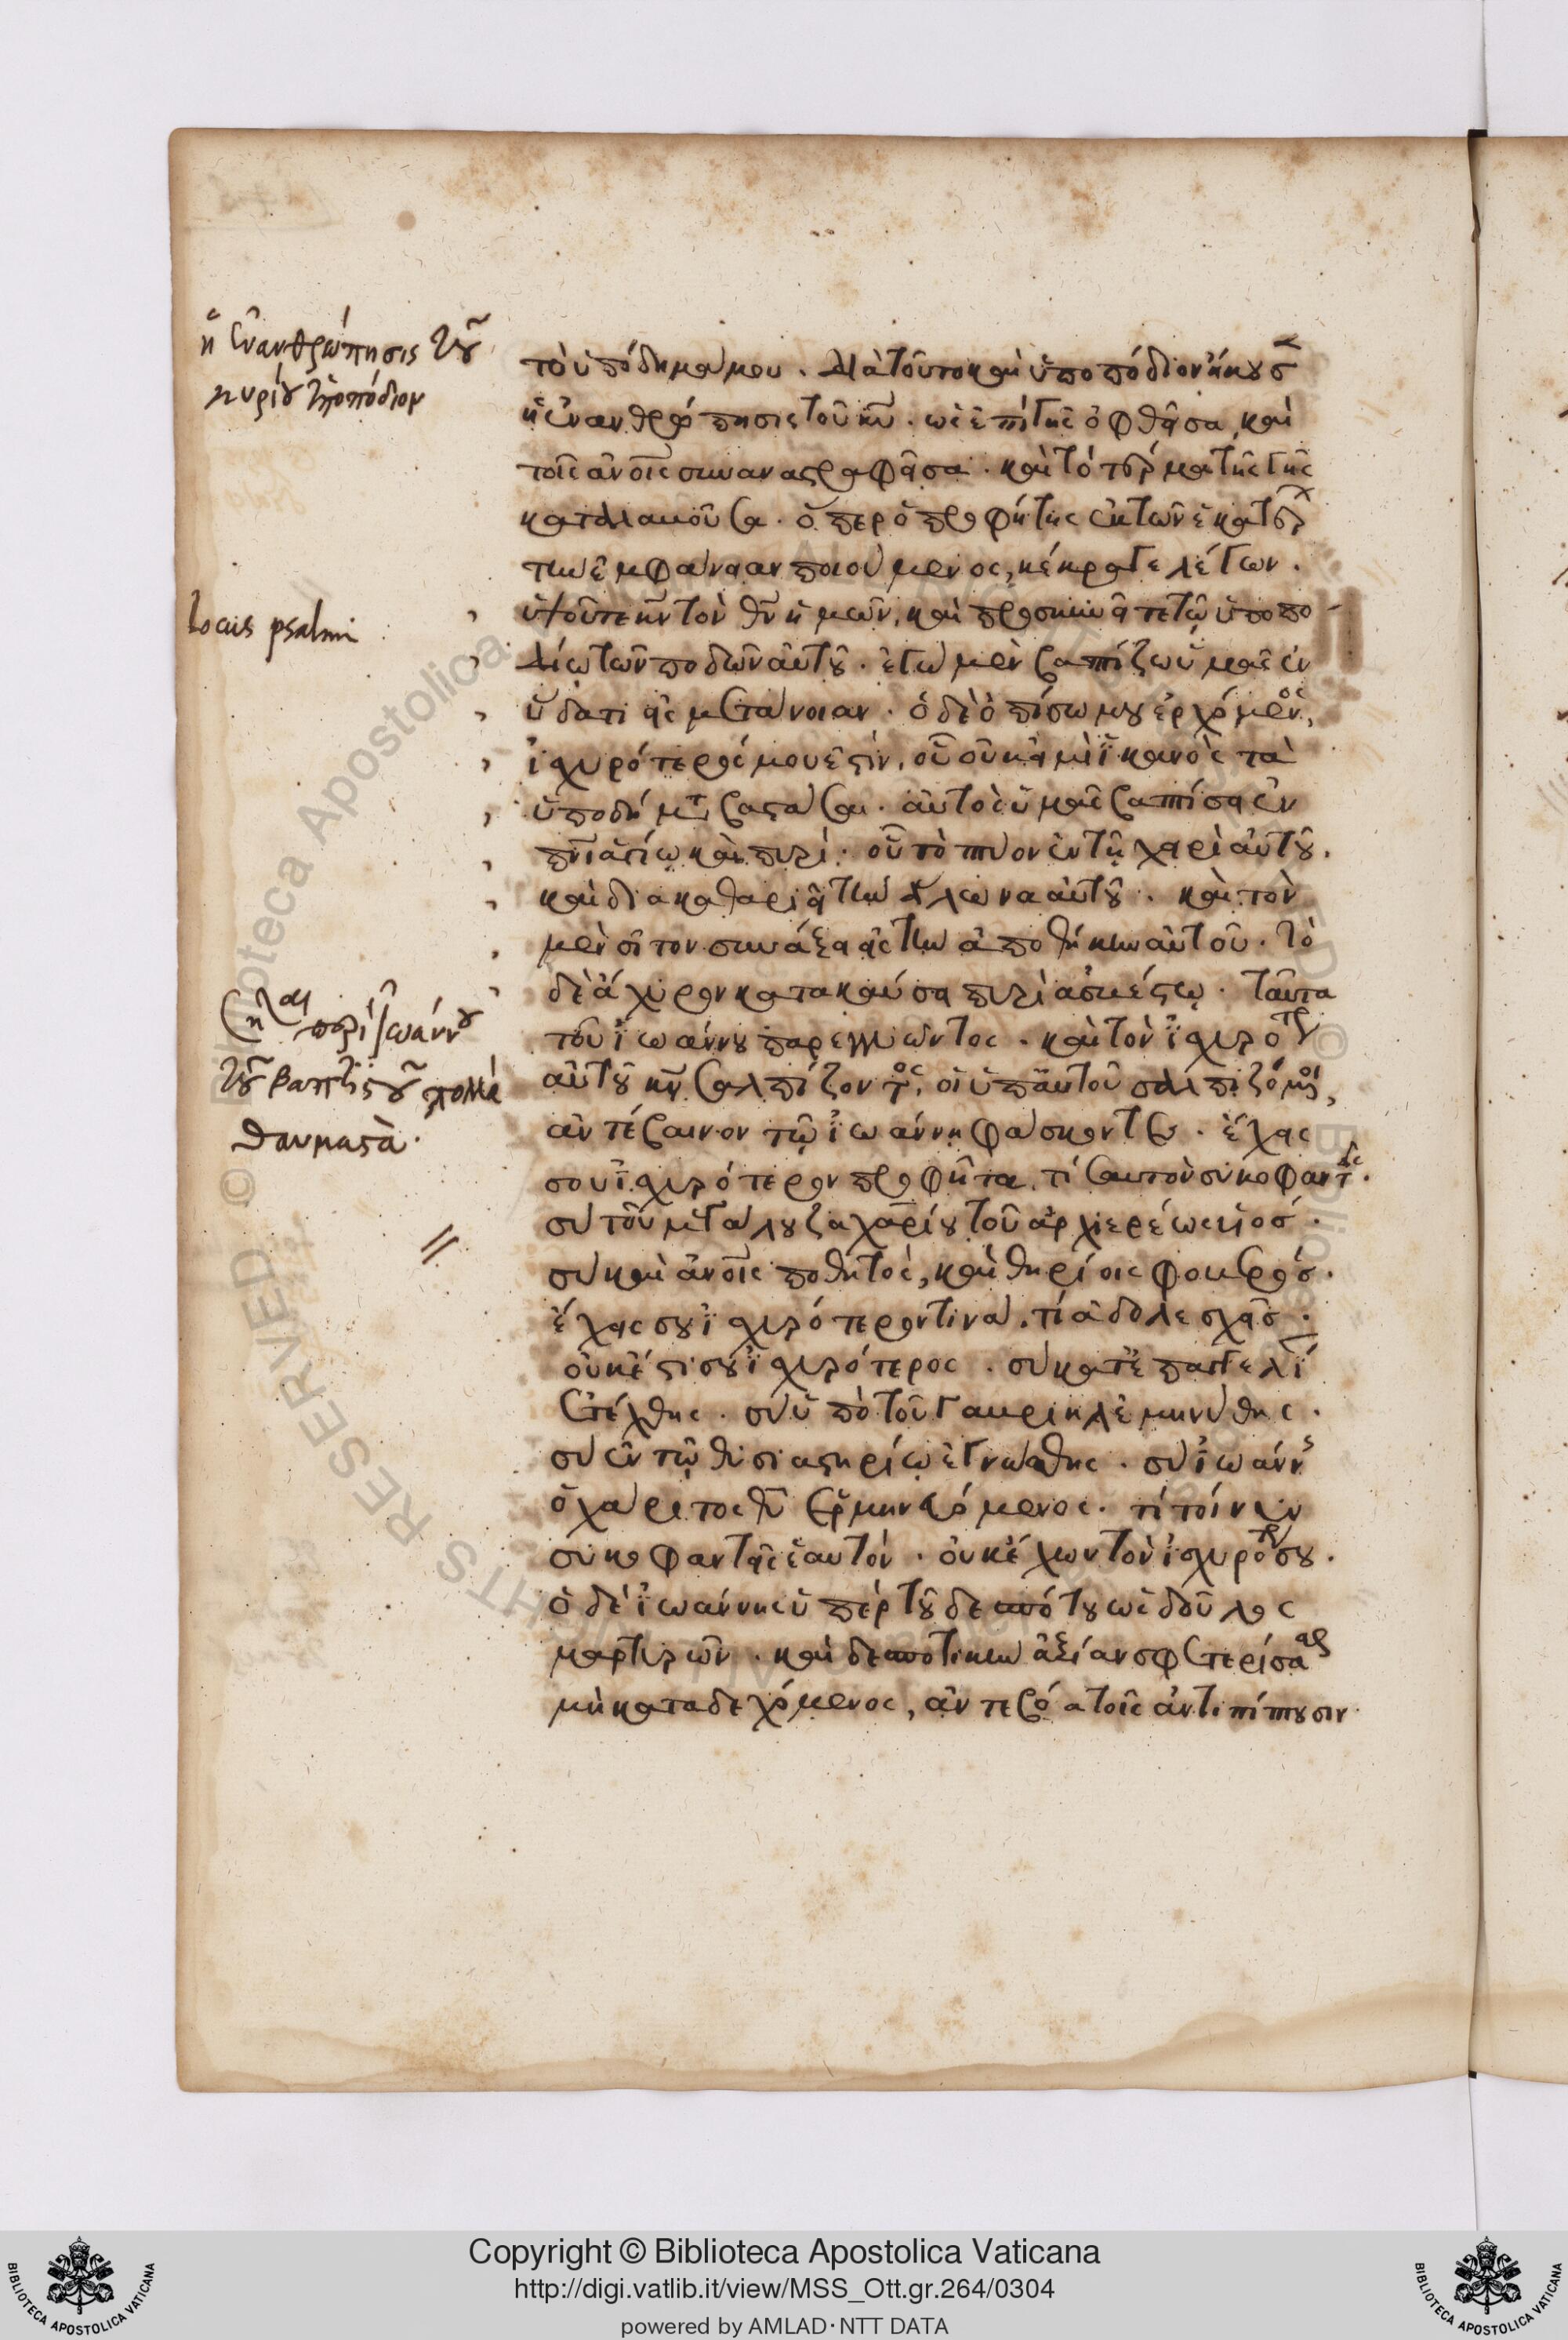 ἡ ἐνανθρώπησις τοῦ
κυρίου ὑποπόδιον
τὸ ὑπόδημά μου. διὰ τοῦτο καὶ ὑποπόδιον ἤκουσ
ἡ ἐνανθρώπησις τοῦ κυ. ὡς ἐπὶ γῆς ὀφθεῖσα, καὶ
τοῖς ανοις συναναστραφεῖσα. καὶ τὸ τέρμα τῆς γῆς
ὅπερ ὁ προφήτης ἐκ τῶν ἑκατέρ
τὴν ἐμφάνειαν ποιούμενος, κέκραγε λέγων.
locus psalmi
ὑψοῦτε κν τὸν θν ἡμῶν, καὶ προσκυνεῖτε τῷ ὑποπο-
δίω τῶν ποδῶν αὐτοῦ. ἐγὼ μὲν βαπτίζω ὑμᾶς ἐν
ὕδατι εἰς μετάνοιαν. ὁ δὲ ὀπίσω μου ἐρχόμενος,
ἰσχυρότερός μου ἐστὶν, οὗ οὐκ εἰμὶ ἱκανὸς τὰ
ὑποδήματα βαστάσαι. αὐτὸς ὑμᾶς βαπτίσει ἐν
πνι ἁγίω καὶ πυρί. οὗ τὸ πτύον ἐν τῇ χειρὶ αὐτοῦ.
καὶ διακαθαριεῖ τὴν ἅλωνα αὐτοῦ. καὶ τὸν
μὲν σῖτον συνάξει εἰς τὴν ἀποθήκην αὐτοῦ. τὸ
δὲ ἄχυρον κατακαύσει πυρὶ ἀσβέστω. ταῦτα
περὶ Ἰωάννου
τοῦ βαπτιστοῦ πολλὰ
θαυμαστὰ.
τοῦ ἰωάννου παρεγγυῶντος. καὶ τὸν ἰσχυρότερ
αὐτοῦ κν σαλπίζοντος, οἱ ὑπ' αὐτοῦ σαλπιζόμενοι,
ἀντέβαινον τῷ ἰωάννη φάσκοντες. ἔχεις
σου ἰσχυρότερον προφῆτα. τί σαυτὸν συκοφαντεῖς.
σὺ τοῦ μεγάλου ζαχαρίου τοῦ ἀρχιερέως υἱός.
σὺ καὶ ανοις ποθητὸς, καὶ θηρίοις φοβερός.
ἔχεις σου ἰσχυρότερον τινὰ. τί ἀδολεσχεῖς.
οὐκ ἔστι σου ἰσχυρότερος. σὺ κατ' ἐπαγγελί
ἐτέχθης. σὺ ὑπὸ τοῦ γαβριὴλ ἐμηνύθης.
σὺ ἐν τῷ θυσιαστηρίω ἐγνώσθης. σὺ ἰωάννης
ὁ χάριτος θυ ἑρμηνευόμενος. τί τοίνυν
συκοφαντεῖς ἑαυτόν. οὐκ ἔχων τὸν ἰσχυρότερόν σου.
ὁ δὲ ἰωάννης ὑπὲρ τοῦ δεσπότου ὡς δοῦλος
μαρτυρῶν. καὶ δεσποτικὴν ἀξίαν σφετερίσασθαι
μὴ καταδεχόμενος, ἀντεβόα τοῖς ἀντιπίπτουσιν
Copyright © Biblioteca Apostolica Vaticana
http://digi.vatlib.it/view/MSS_Ott.gr.264/0304
powered by AMLAD·NTT DATA
BIBLIOTECA APOSTOLICA VATICANA
BIBLIOTECA APOSTOLICA VATICANA